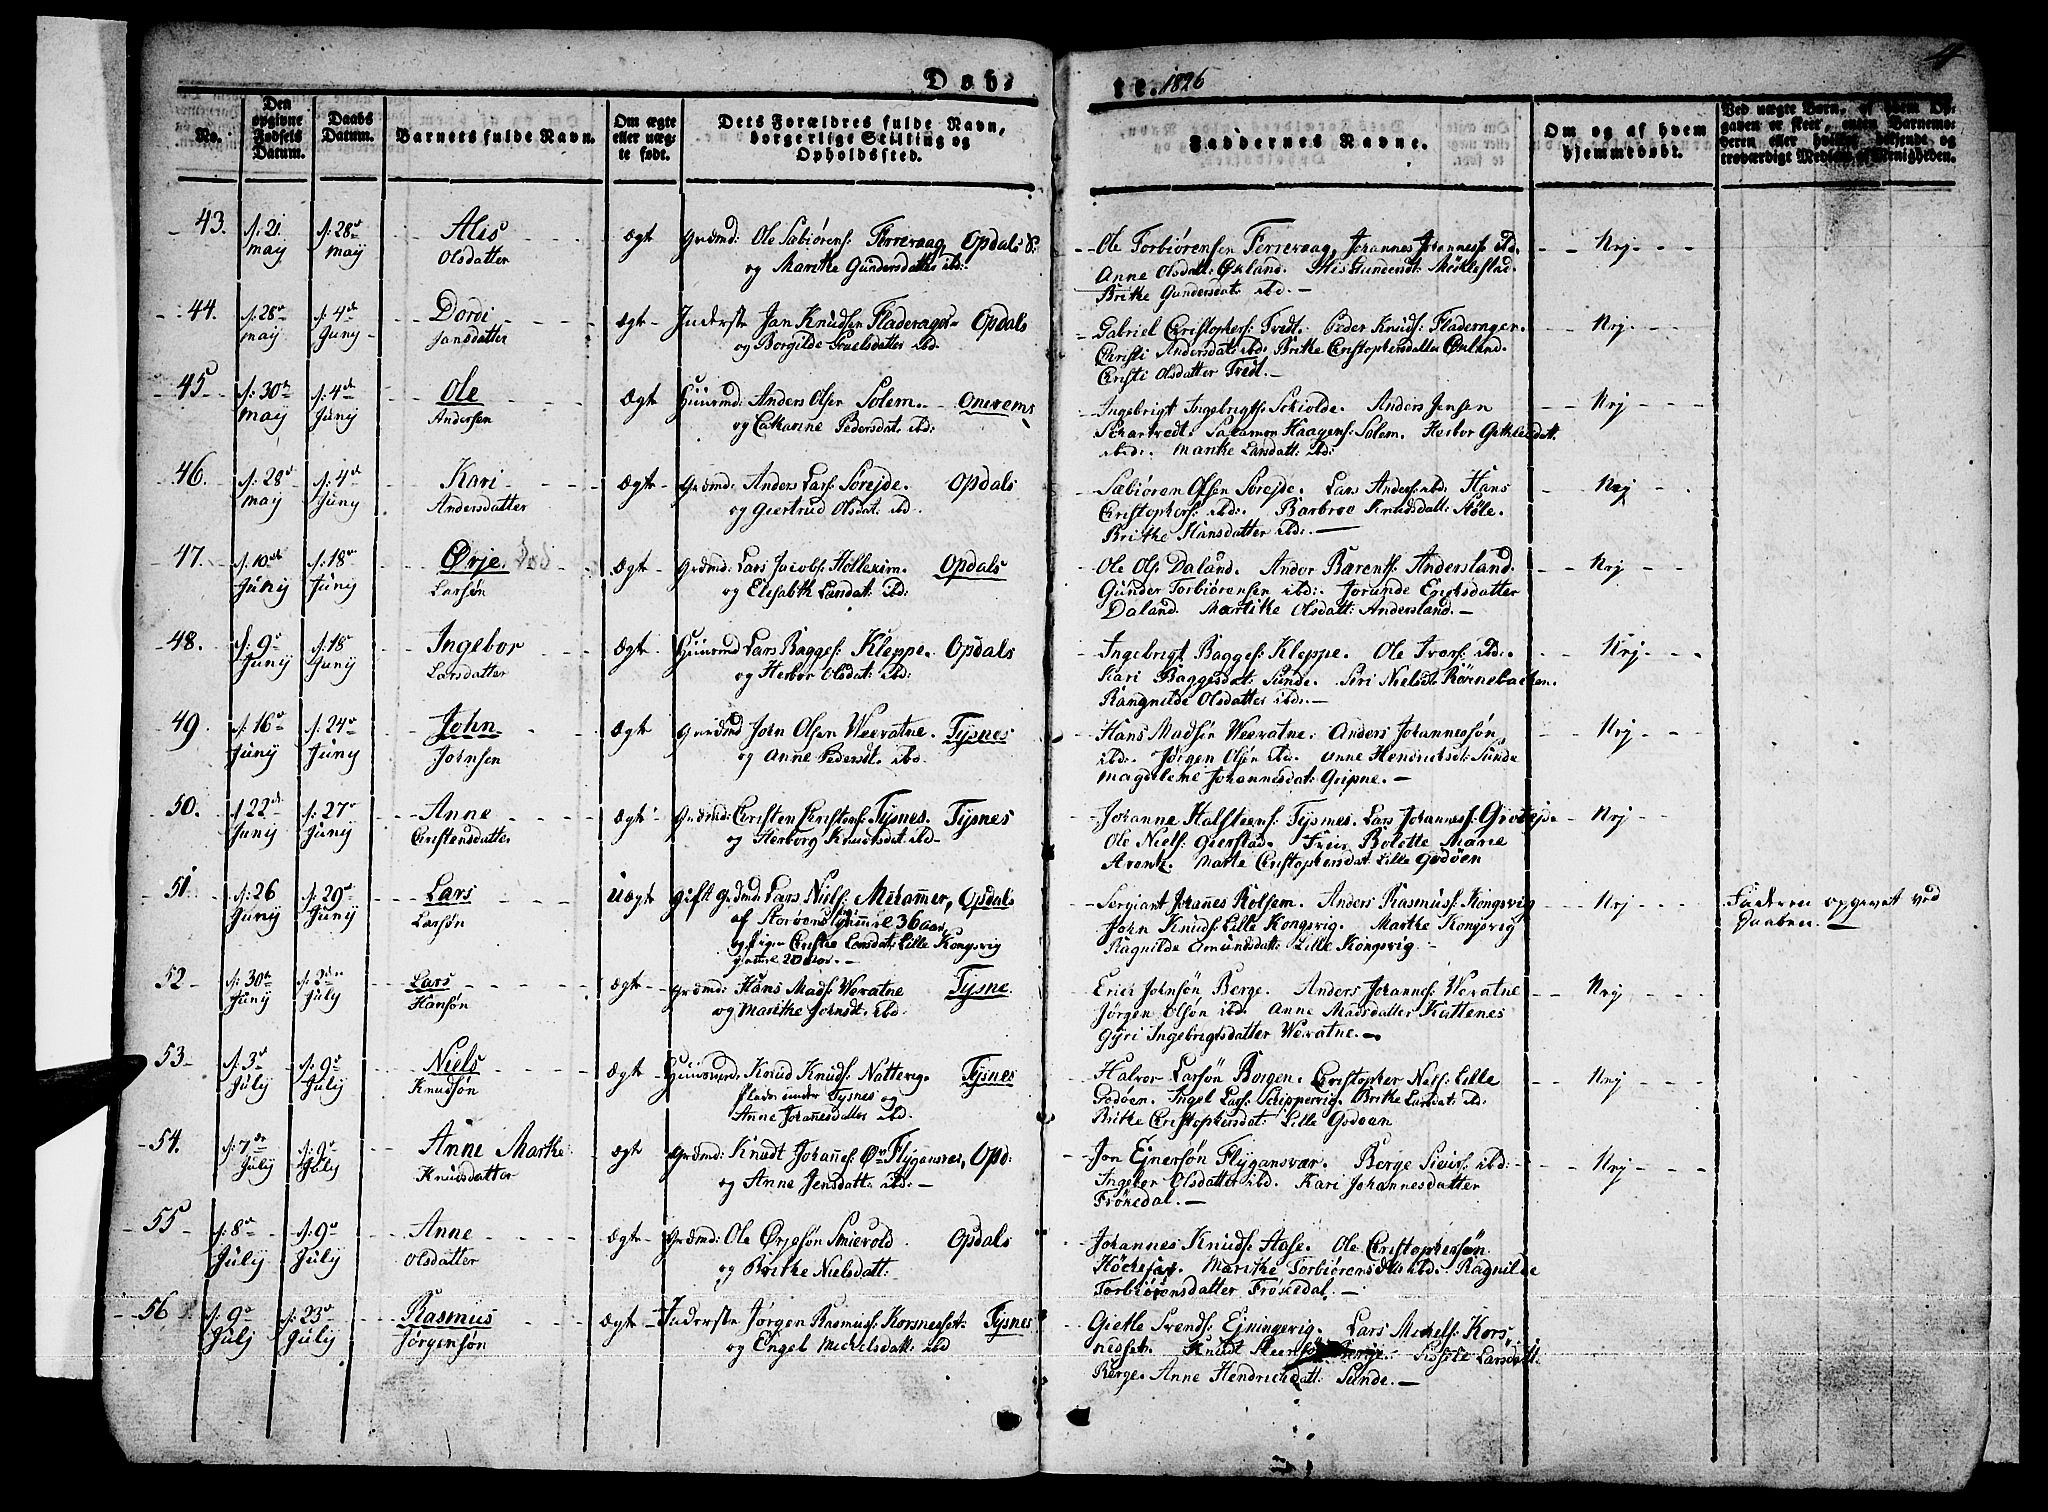 Døb-
te. 1826
4
No.
Den opgivne Fødsels Datum.
Daabs Datum.
Barnets fulde Navn.
Om ægte eller uægte født.
Dets Forældres fulde Navn, borgerlige Stilling og Opholdssted.
Faddernes Navne.
Om og af hvem hjemmedøbt.
Ved uægte Børn, af hvem Opgaven er skeet, enten Barnemoderen eller hvilket boesiddende og troværdigt Medlem af Menigheden.
43. d: 21 may d: 28 may Alis Olsdatter Ægt Grdmd: Ole Sæbiörens: Ferrevaag, Opdals S:
og Marithe Gundersdatter ibd:
Ole Torbiörensen Ferrevaag, Johannes Johanness: ibd.
Anne Olsdatt: Öxland. Alis Gunersdt: Mökelestad.
Brithe Gundersdat: ibd. —
Nej
44. d: 28 may d: 4 Juny Dordi Jansdatter Ægt Inderste Jan Knudsen Fladerager Opdals
og Borgilde Poulsdatter ibd.
Gabriel Christophers: Tvedt. Peder Knuds: Fladerager.
Christi Andersdat: ibd. Brithe Christophersdatter Öxland.
Christi Olsdatter Tvedt. —
Nej
45 d: 30 may d: 4 Juny Ole Andersen Ægt Huusmd: Anders Olsen Solem. Onerems
og Catharine Pedersdat: ibd:
Ingebrigt Ingebrigts: Schiolde. Anders Jensen
Schartvedt. Salamon Haagens: Solem. Herbor
ibd:. Marthe Larsdatt: ibd:
Nej
46. d: 28 may d: 4 Juny Kari Andersdatter Ægt Grdmd: Anders Lars: Sörejde. Opdals
og Giertrud Olsdat: ibd.
Sæbiören Olsen Sörejde. Lars Anders: ibd. Hans
Christophers: ibd:. Barbroe Knudsdatt: Stöle.
Brithe Hansdatter ibd: —
Nej
47. d: 10 Juny d: 18 Juny Ørje Død Larsön Ægt Grdmd: Lars Jacobs: Hollekim. Opdals
og Elisabth Larsdat: ibd:
Ole Ols: Daland. Andor Bærents: Andersland.
Gunder Torbiörensen ibd:. Jorunde Erichsdatter
Daland. Marthe Olsdatt: Andersland. —
Nej
48. d: 9 Juny d: 18 Juny Ingebor Larsdatter Ægt Huusmd Lars Bagges: Kleppe. Opdals
og Herbor Olsdat: ibd:
Ingebrigt Bagges: Kleppe. Ole Ivers: ibd:.
Kari Baggesdat: Sunde. Siri Nielsdt: Börnebacken.
Rangnilde Olsdatter ibd: —
Nej
49. d: 16 Juny d: 24 Juny John Johnsen Ægt Grdmd John Olsen Wevatne. Tysnes
og Anne Pedersdt. ibd.
Hans Madsön Wevatne. Anders Johannessön
ibd:. Jörgen Olsön ibd. Anne Hendrichsdt: Sunde
Magdelene Johannesdat: Gripne. —
Nej
50. d: 22 Juny d: 27 Juny Anne Christensdatter Ægt Grdmd: Christen Christens: Tysnes. Tysnes
og Herborg Knudtsdat: ibd
Johanne Halsteens: Tysnes. Lars Johanness:
Ole Niels: Gierstad. Frue Bolette Marie
Arentz. Marte Christophersdat: Lille Godöen
Nej
51. d: 26 Juny d: 29 Juny Lars Larsön Uægt Gift Grdmd Lars Niels: Mehammer, Opdals
af Storöens gammel 36 aar,
og Pigen Christie Larsdat: Lille Kongsvig
gaml 20 aar. —
Sergiant Johannes Rolsem. Anders Rasmus: Kongsvig
John Knuds: Lille Kongsvig. Marthe Kongsvig
Ragnilde Emundsdatt: Lille Kongsvig.
Nej Faderen opgivet ved
Daaben. —
52 d: 30 Juny d: 2 July Lars Hansön Ægt Grdmd: Hans Mads: Wevatne Tysne.
og Marithe Johnsdt: ibd.
Erich Johnsön Berge. Anders Johannes: Wevatne
Jörgen Olsön ibd. Anne Madsdatter Kattenes
Gyri Ingebrigtsdatter Wevatne. —
Nej
53 d: 3 July d: 9 July Niels Knudsön Ægt Huusmd. Knud Knuds: Nattevig. Tysnes
Plads under Tysnes og
Anne Johannesdatter ibd.
Halvor Larsön Borgen. Christopher Niels: Lille
Godöen. Ingel Lars: Skippervig. Brithe Larsdat: ibd:
Brithe Christophersdat: Lille Godöen
Nej
54. d: 7 July d: 9 July Anne Marthe Knudsdatter Ægt Grdmd: Knudt Johannes: Flygansvær, Opd:
og Anne Jensdatt: ibd: —
Jon Ejnersön Flygansvær. Berge Siurs: ibd:
Ingebor Olsdatter ibd. Kari Johannesdatter
Fröchedal. —
Nej
55 d: 8 July d: 9 July Anne Olsdatter Ægt Grdmd: Ole Ørjesön Smievold. Opdals
og Brithe Nielsdatt:
Johannes Knuds: Aase. Ole Christophersön
Marithe Torbiörensdtter ibd. Ragnilde
Torbiörensdatter Fröchedal. —
56 d: 9 July d: 23 July Rasmus Jörgensön Ægt Inderste Jörgen Rasmus: Korsneset Tysnes
og Engel Michelsdatt: ibd
Gietle Svends: Ejningevig. Lars Michels: Kors
neset. Knudt Steensön Berge. Sissele Larsdatt:
Berge. Anne Hendrichsdatt: Sunde. —